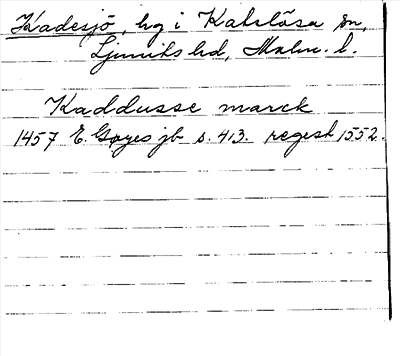 Kadesjö, hg i Katslösa sn,
Ljunits hd, Malm. l.
Kaddusse marck
1457 E. Gøyes jb s. 413. regest 1552.